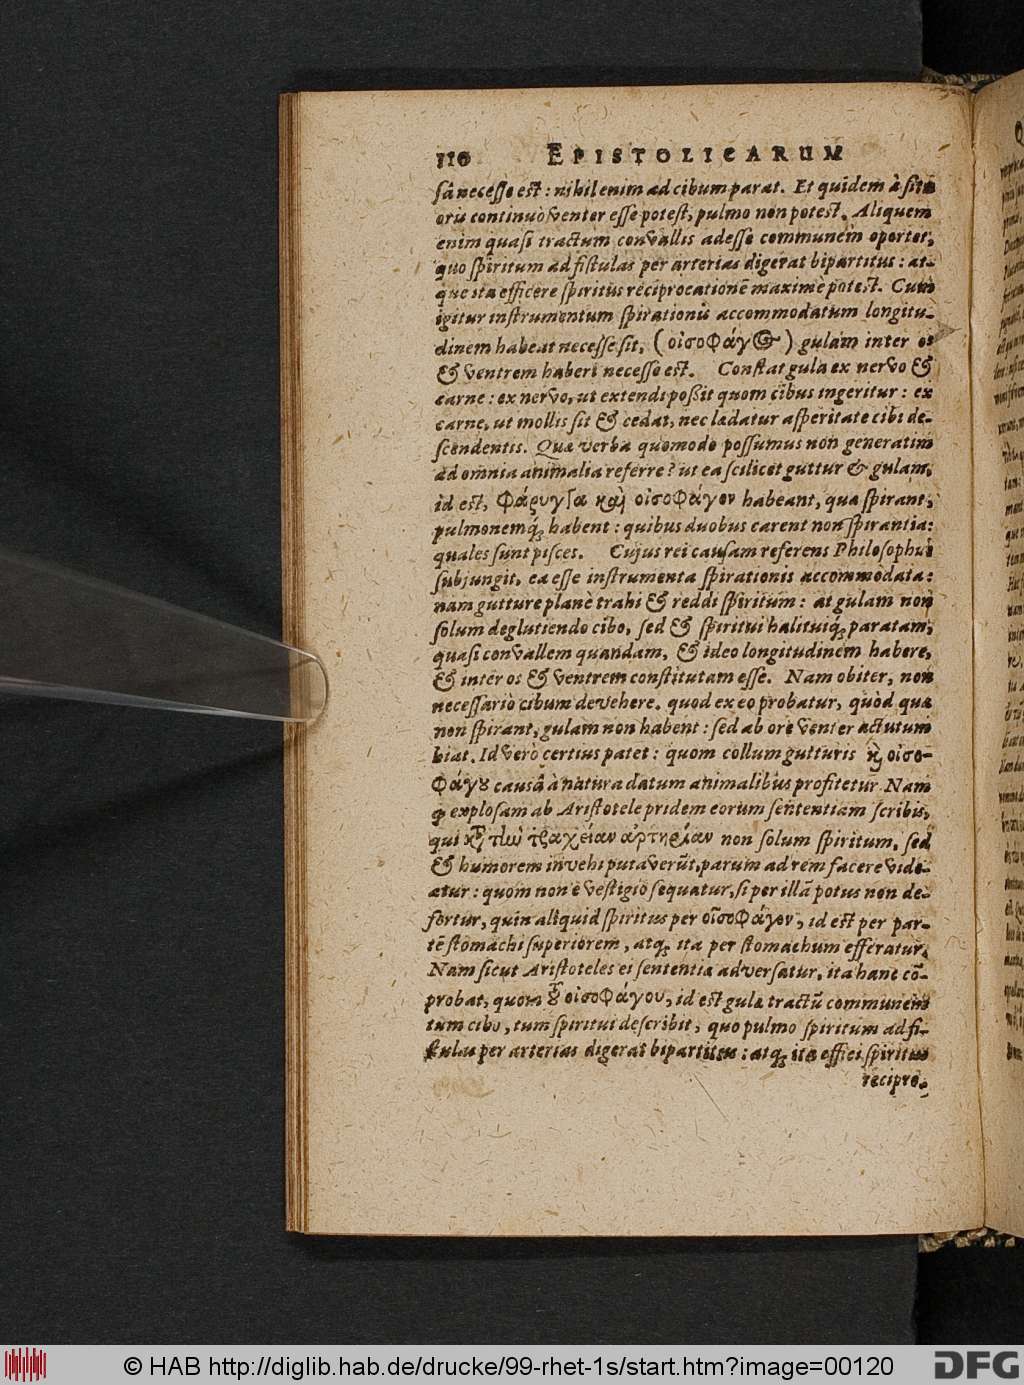 110 EPISTOLICARUM
sâ necesse est: nihil enim ad cibum parat. Et quidem à sitis
oris continuò venter esse potest, pulmo non potest. Aliquem
enim quasi tractum convallis adesse communem oportet,
quo spiritum ad fistulas per arterias digerat bipartitus: at-
que ita efficere spiritus reciprocationẽ maximè potest. Cum
igitur instrumentum spirationis accommodatum longitu-
dinem habeat necesse sit, (οἰσοφάγος) gulam inter os
& ventrem haberi necesse est. Constat gula ex nervo &
carne: ex nervo, ut extendi poßit quom cibus ingeritur: ex
carne, ut mollis sit & cedat, nec lædatur asperitate cibi de-
scendentis. Quæ verba quomodo possumus non generatim
ad omnia animalia referre? ut ea scilicet guttur & gulam,
id est, φάρυγγα καὶ οἰσοφάγον habeant, qua spirant,
pulmonemq́; habent: quibus duobus carent non spirantia:
quales sunt pisces. Cujus rei causam referens Philosophus
subjungit, ea esse instrumenta spirationis accommodata:
nam gutture planè trahi & reddi spiritum: at gulam non
solum deglutiendo cibo, sed & spiritui halituiq́; paratam,
quasi convallem quandam, & ideo longitudinem habere,
& inter os & ventrem constitutam esse. Nam obiter, non
necessariò cibum devehere. quod ex eo probatur, quòd quæ
non spirant, gulam non habent: sed ab ore venter actutum
hiat. Id verò certius patet: quom collum gutturis κ̀ οἰσο-
φάγου causâ à natura datum animalibus profitetur. Nam
φ explosam ab Aristotele pridem eorum sententiam scribis,
qui κτ̀ τίω τραχεῖαν ἀρτηρίαν non solum spiritum, sed
& humorem invehi putaverũt, parum ad rem facere vide-
atur: quom non è vestigio sequatur, si per illã potus non de-
fertur, quin aliquid spiritus per οἰσοφάγον, id est per par-
tẽ stomachi superiorem, atq́; ita per stomachum efferatur.
Nam sicut Aristoteles ei sententia adversatur, ita hanc cõ-
probat, quom τοῦ οἰσοφάγου, id est gulæ tractũ communem
tum cibo, tum spiritui describit, quo pulmo spiritum ad fi-
stulas per arterias digerat bipartitus: atq́; ita effici spiritus
recipro-
© HAB http://diglib.hab.de/drucke/99-rhet-1s/start.htm?image=00120
DFG